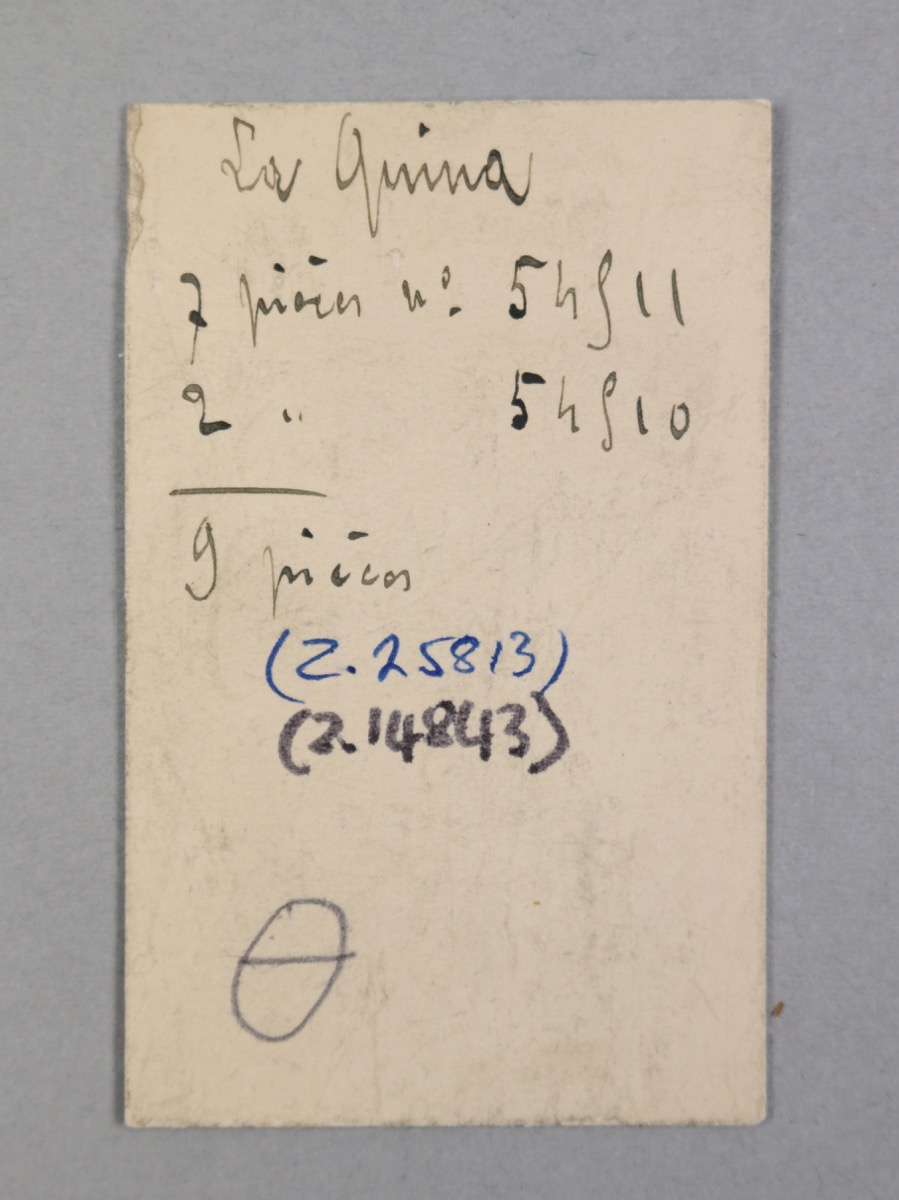 La Quina
7 pièces nº. 54911
2 " 54910
9 pièces
(Z.25813)
(2.14843)